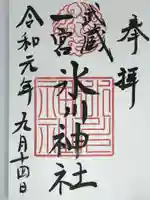 奉拝
武蔵
一宮
氷川神社
令和元年五月十四日